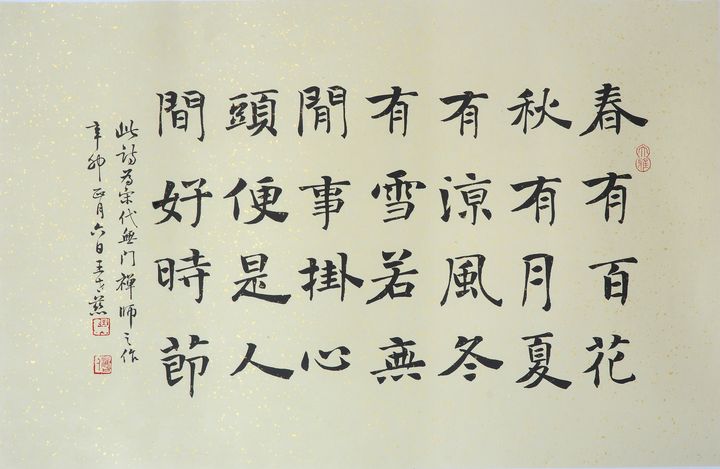 春有百花
秋有月夏
有涼風冬
有雪若無
閒事掛心
頭便是人
間好時節
此詩為宋代無門禪師之作
辛卯正月六日王